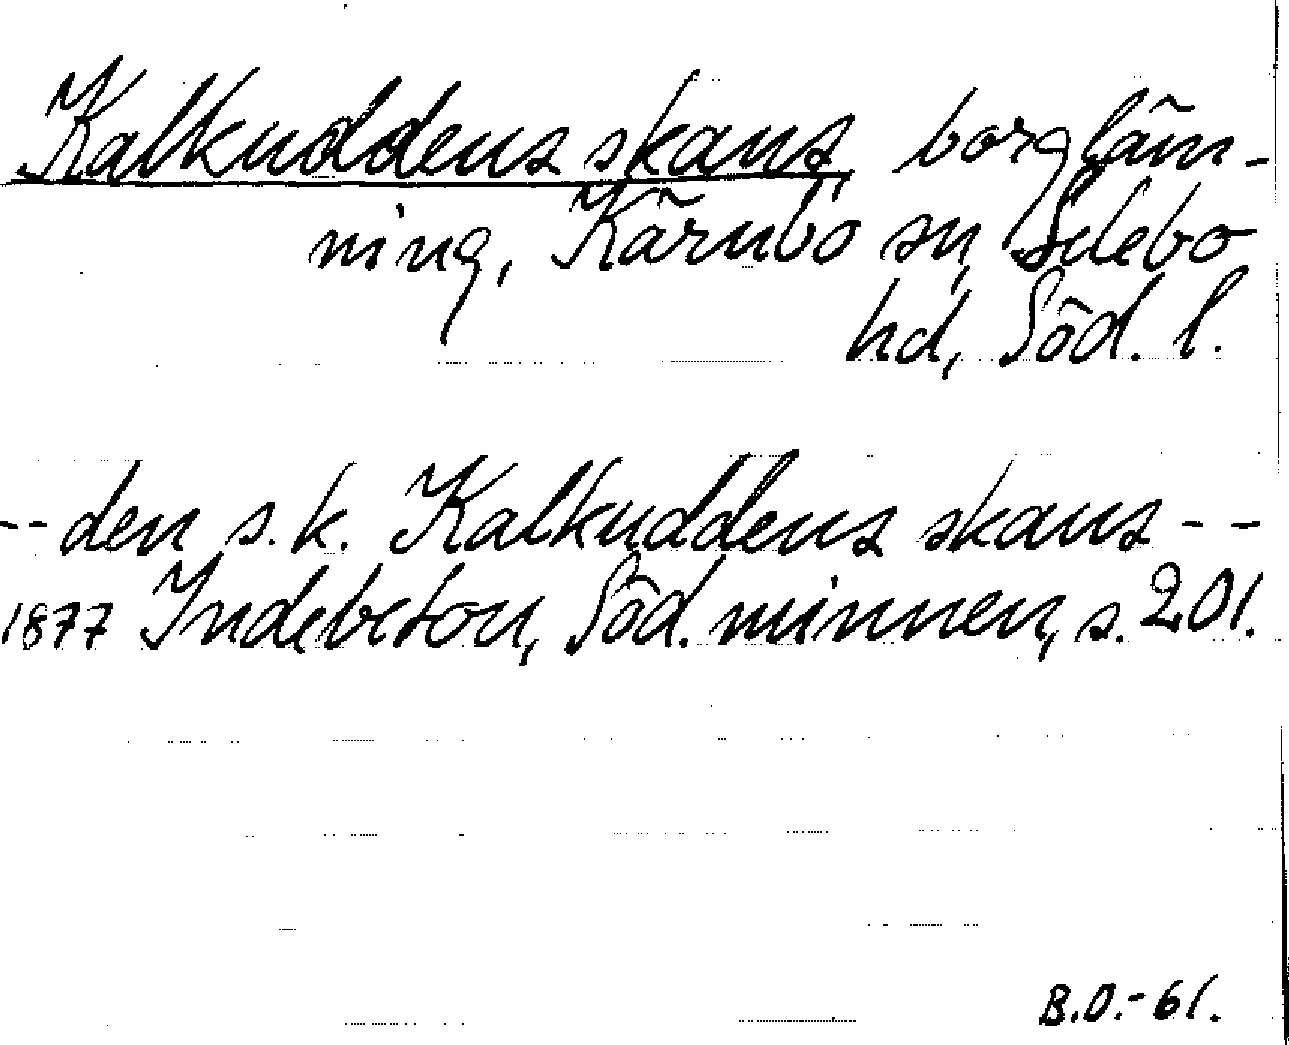 Kalkuddens skans, borgläm-
ning, Kärnbo sn, Selebo
hd, Söd. l.
-- den s.k. Kalkuddens skans --
1877 Indebetou, Söd. minnen, s. 201.
B.O.-61.